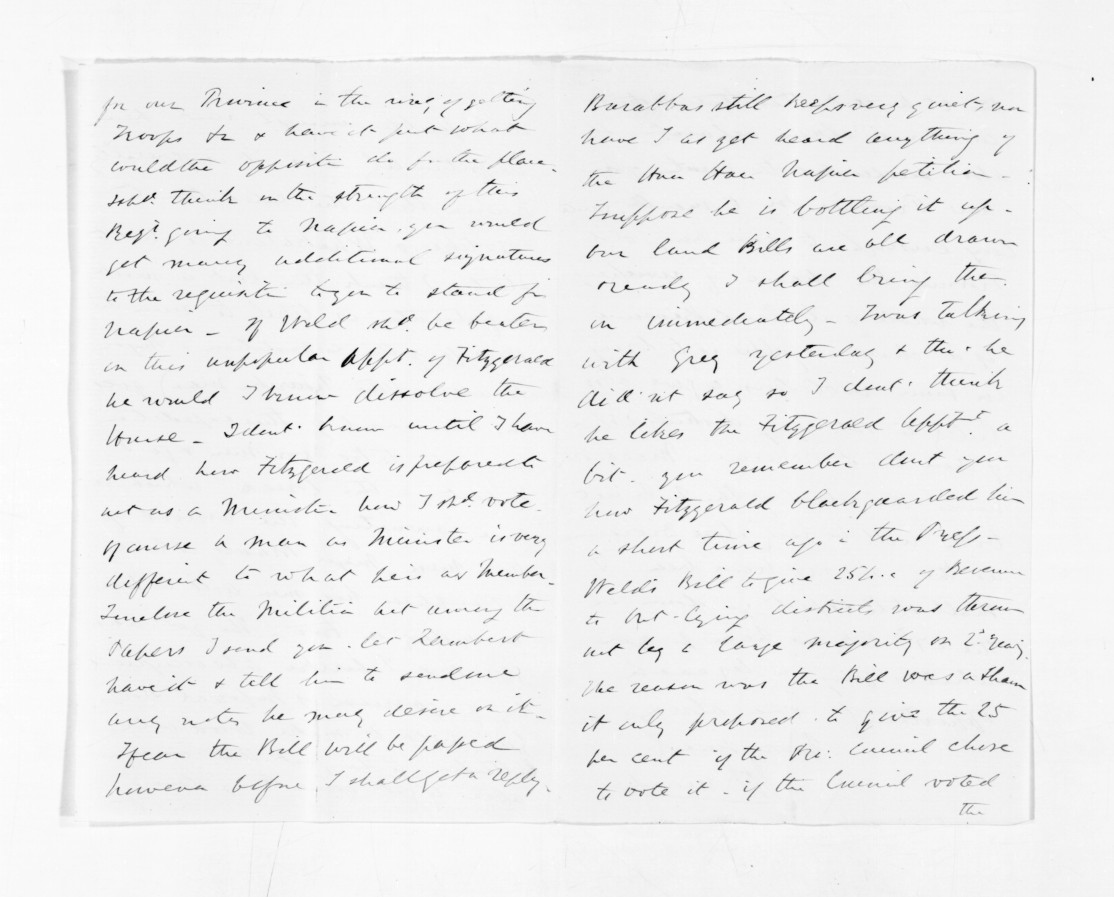 for our Province in the way of getting
Troops &c & have it just what
would the opposition do for the place.
I shd. think on the strength of this
Regt. going to Napier, you would
get many additional signatures
to the requisition to you to stand for
Napier - If Weld shd. be beaten
on this unpopular appt. of Fitzgerald
he would I know dissolve the
House - I dont know until I have
heard how Fitzgerald is prepared to
act as a Minister how I shd. vote.
Of course a man as Minister is very
different to what he is as Member -
I enclose the Militia Act among the
Papers I send you. let Lambert
have it & tell him to send me
any notes he may desire on it -
I fear the Bill will be passed
however before I shall get a reply.
Barabbas still keeps very quiet, nor
have I as yet heard anything of
the Hau Hau Napier petition -
I suppose he is bottling it up -
Our land Bills are all drawn
ready I shall bring them
in immediately - I was talking
with Grey yesterday & tho' he
did not say so I dont think
he likes the Fitzgerald Apptt. a
bit. you remember dont you
how Fitzgerald blackguarded him
a short time ago in the Press -
Weld's Bill to give 25 p.c of Revenue
to out-lying districts was thrown
out by a large majority on 2d. readg.
The reason was the Bill was a sham
it only proposed to give the 25
per cent if the Pro: Council chose
to vote it - if the Council voted
the